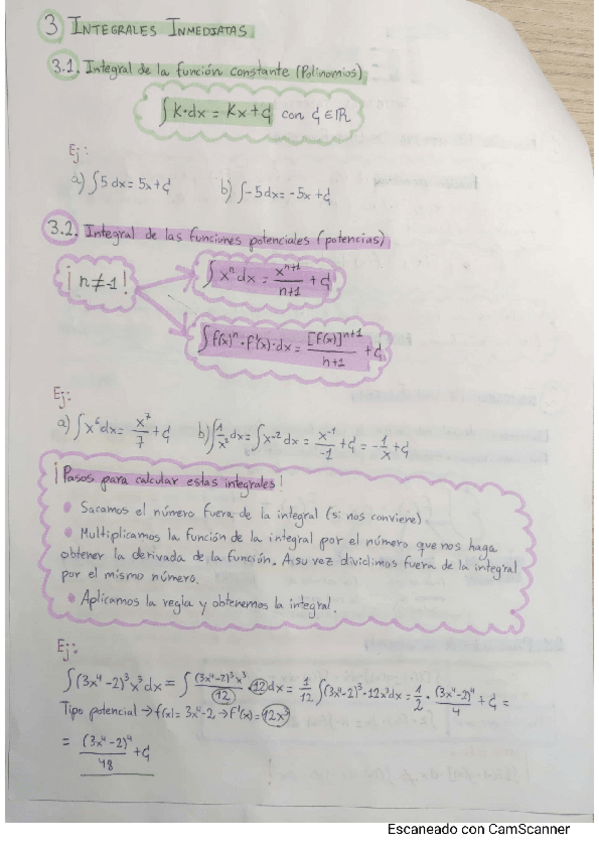 3 INTEGRALES INMEDIATAS
3.1. Integral de la función constante (Polinomios)
∫K·dx = Kx+C con C∈ℝ
Ej:
a) ∫5dx = 5x+C b) ∫-5dx = -5x+C
3.2. Integral de las funciones potenciales (potencias)
¡n≠-1! ∫xⁿdx = xⁿ⁺¹/n+1 + C
∫f(x)ⁿ·f'(x)·dx = [f(x)]ⁿ⁺¹/n+1 + C
Ej:
a) ∫x⁶dx = x⁷/7 + C b) ∫1/x² dx = ∫x⁻²dx = x⁻¹/-1 + C = -1/x + C
¡Pasos para calcular estas integrales!
• Sacamos el número fuera de la integral (si nos conviene)
• Multiplicamos la función de la integral por el número que nos haga
obtener la derivada de la función. A su vez dividimos fuera de la integral
por el mismo número.
• Aplicamos la regla y obtenemos la integral.
Ej:
∫(3x⁴-2)³x³dx = ∫(3x⁴-2)³x³/12 · 12dx = 1/12 ∫(3x⁴-2)³·12x³dx = 1/2 · (3x⁴-2)⁴/4 + C =
Tipo potencial → f(x) = 3x⁴-2 → f'(x) = 12x³
= (3x⁴-2)⁴/48 + C
Escaneado con CamScanner